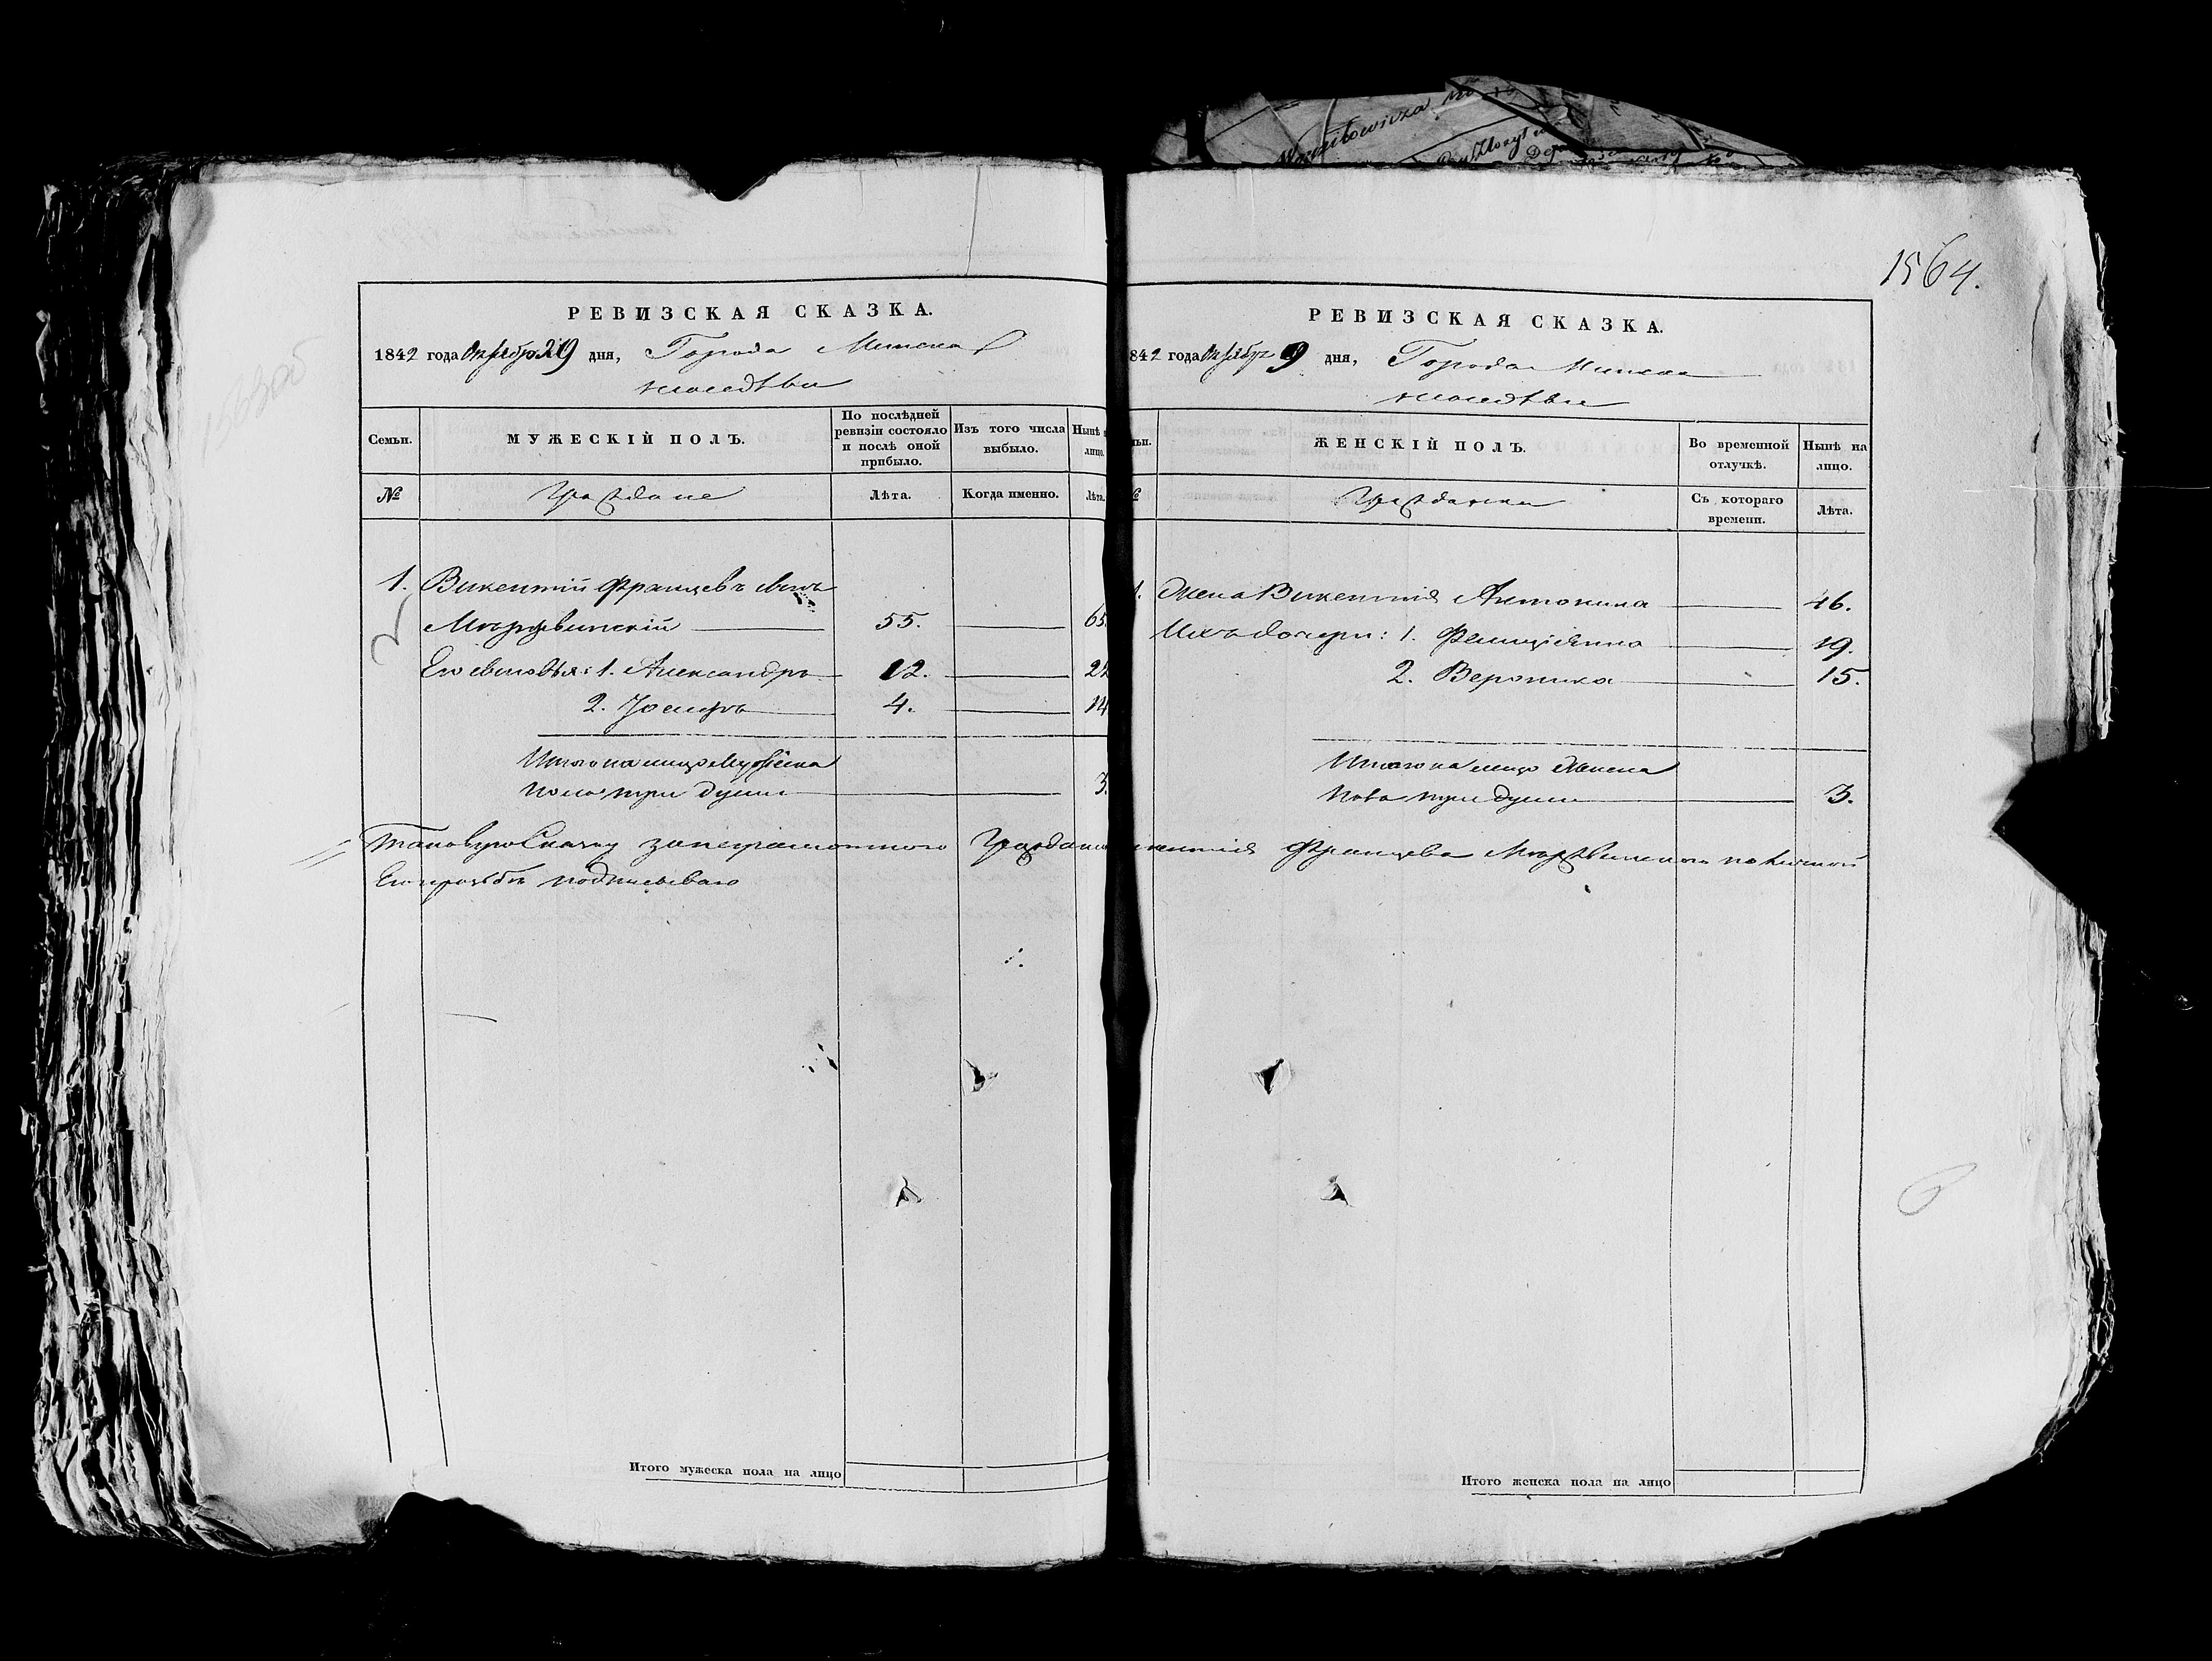 1564.
РЕВИЗСКАЯ СКАЗКА.
1842 года Октября 9 дня, Города Минска
МУЖЕСКІЙ ПОЛЪ.
Семьи.
По послѣдней ревизіи состояло и послѣ оной прибыло.
Изъ того числа выбыло.
Нынѣ
лицо.
№
Граждане
Лѣта.
Когда именно.
Лѣта.
1. Викентій Францевъ сынъ
55. 65
Его сыновья: 1. Александръ 12. 22
2. Іосифъ 4. 14
Итого на лицо мужеска
пола три души 3.
Таковую Сказку за неграмотного Граждан
Его прозьбѣ подписываю
Итого мужеска пола на лицо
РЕВИЗСКАЯ СКАЗКА.
842 года Октября 9 дня, Города Минска
ЖЕНСКІЙ ПОЛЪ.
Во временной отлучкѣ.
Нынѣ на лицо.
№
Гражданки
Съ котораго времени.
Лѣта.
1. Жена Викентія Антонина 46.
Ихъ дочери: 1. Фелиціянна 19.
2. Вероника 15.
Итого на лицо женска
пола три души 3.
кентія Францева по личной
Итого женска пола на лицо